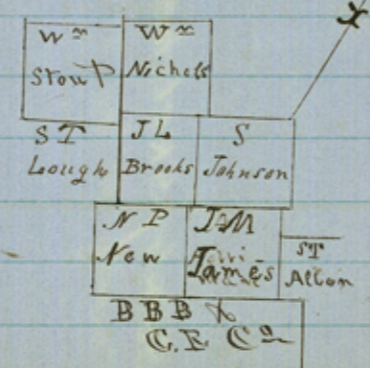 Wm Stout
Wm Nichels
X
ST Lough
JL Brooks
S Johnson
N P New
JAM James
ST Alban
BBB &
C.E Co